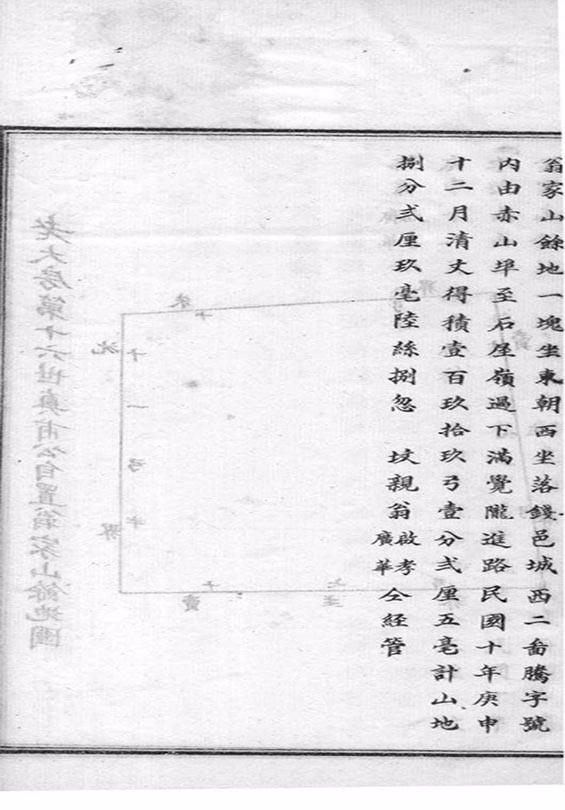 翁家山餘地一塊坐東朝西坐落錢邑城西二畨騰字號
內由赤山埠至石屋嶺過下滿覺隴進路民國十年庚申
十二月清丈得積壹百玖拾玖弓壹分弍厘五毫計山地
捌分弍厘玖毫陸絲捌忽 坟親翁啟孝廣華仝経管
老大房第十六世真甫公自置翁家山餘地圖